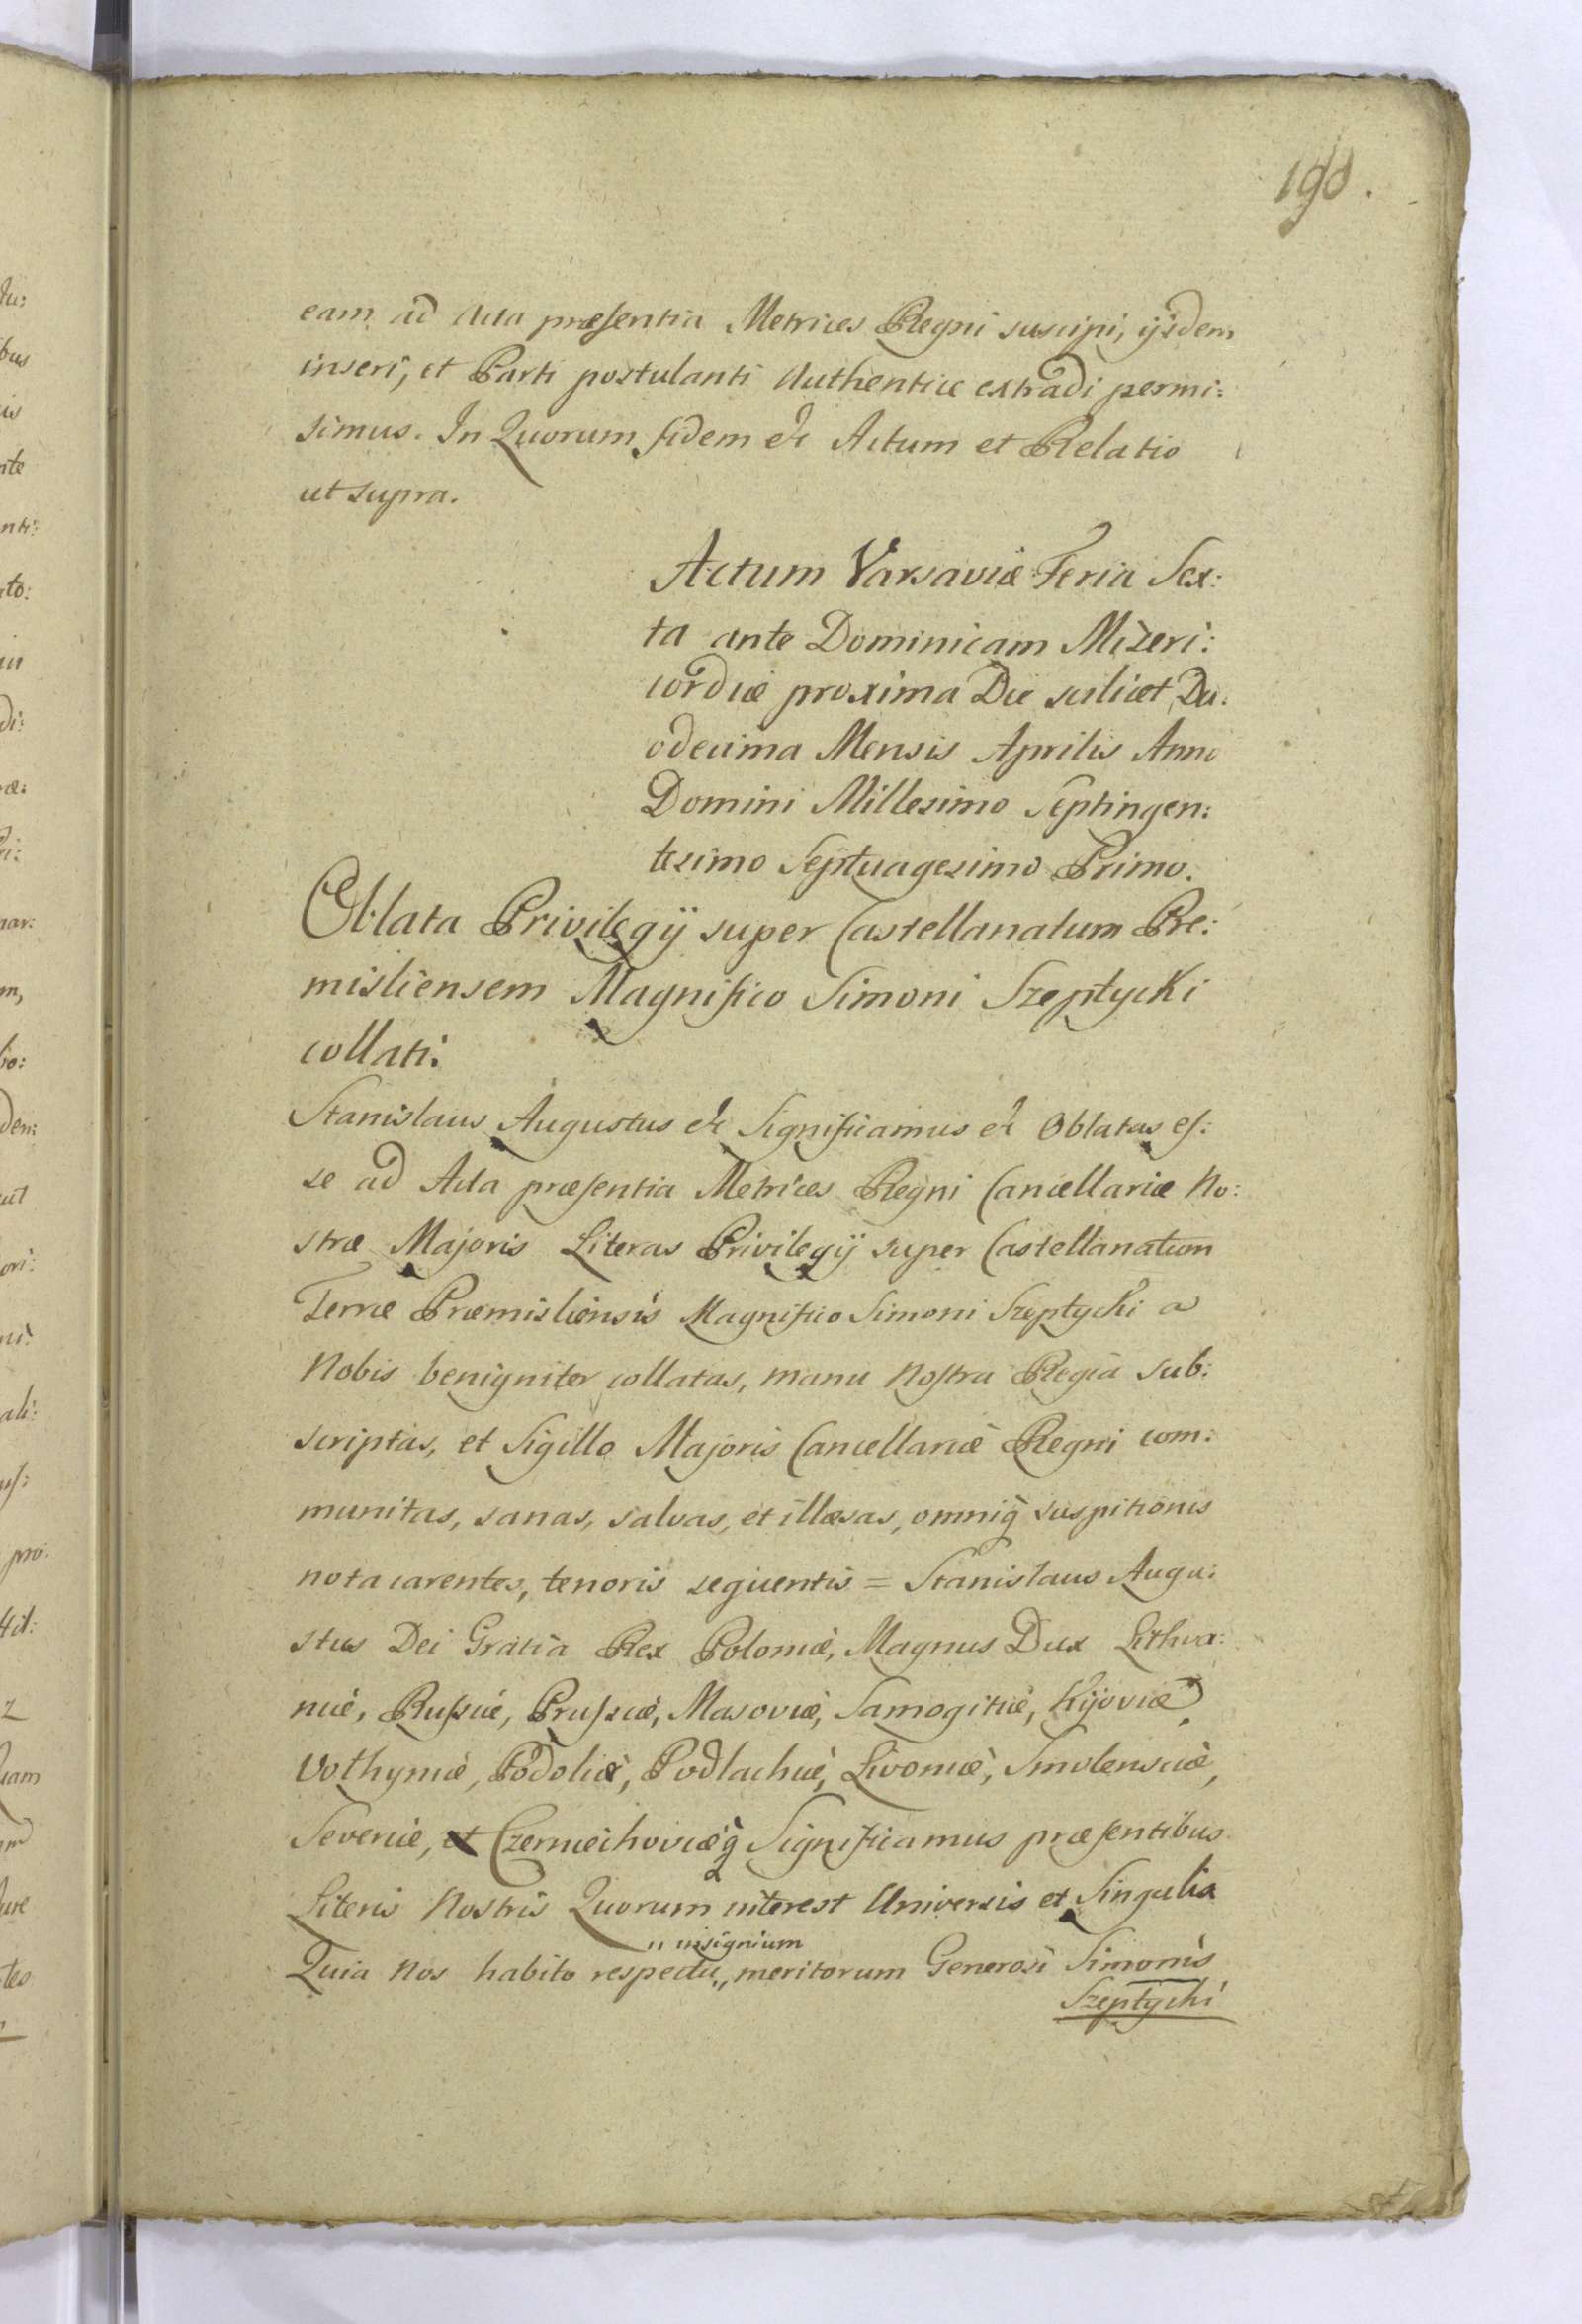 190.
eam ad Acta præsentia Metrices Regni suscipi, ijsdem
inseri, et Parti postulanti Authentice extradi permi:
simus. In Quorum fidem etc Actum et Relatio
ut supra.
Actum Varsaviæ Feria Sex:
ta ante Dominicam Mizeri:
cordiæ proxima Die scilicet Du:
odecima Mensis Aprilis Anno
Domini Millesimo Septingen:
tesimo Septuagesimo Primo.
Oblata Privilegij super Castellanatum Pre:
misliensem Magnifico Simoni Szeptycki
collati.
Stanislaus Augustus etc Significamus etc Oblatas es:
se ad Acta præsentia Metrices Regni Cancellariæ No:
stræ Majoris Literas Privilegij super Castellanatum
Terræ Præmisliensis Magnifico Simoni Szeptycki a
Nobis benigniter collatas, manu Nostra Regia sub:
scriptas, et Sigillo Majoris Cancellariæ Regni com:
munitas, sanas, salvas, et illæsas, omniq̀ suspitionis
nota carentes, tenoris sequentis = Stanislaus Augu:
stus Dei Gratia Rex Poloniæ, Magnus Dux Lithva:
niæ, Russiæ, Prussiæ, Masoviæ, Samogitiæ, Kijoviæ,
Volhyniæ, Podoliæ, Podlachiæ, Livoniæ, Smolensciæ,
Severiæ, et Czerniechoviæq̀ Significamus præsentibus
Literis Nostris Quorum interest Universis et Singulis
Quia Nos habito respectu „ insignium „ meritorum Generosi Simonis
Szeptycki